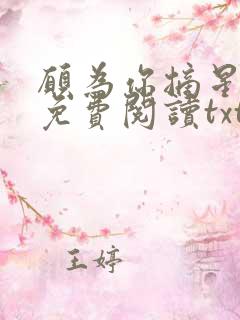 願為你摘星
免費閱讀txt
王婷